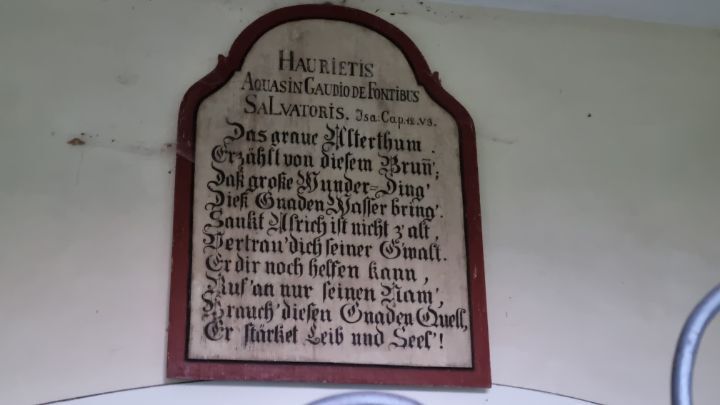 HAURIETIS
AQUAS IN GAUDIO DE FONTIBUS
SALVATORIS. Isa: Cap. 12. V 3.
Das graue Alterthum.
Erzählt von diesem Bruñ;
Daß große Wunder=Ding'
Dieß Gnaden Wasser bring'.
Sankt Ulrich ist nicht z'alt,
Vertrau' dich seiner G'walt.
Er dir noch helfen kann,
Ruf' an nur seinen Nam',
Brauch' diesen Gnaden Quell,
Er stärket Leib und Seel'!